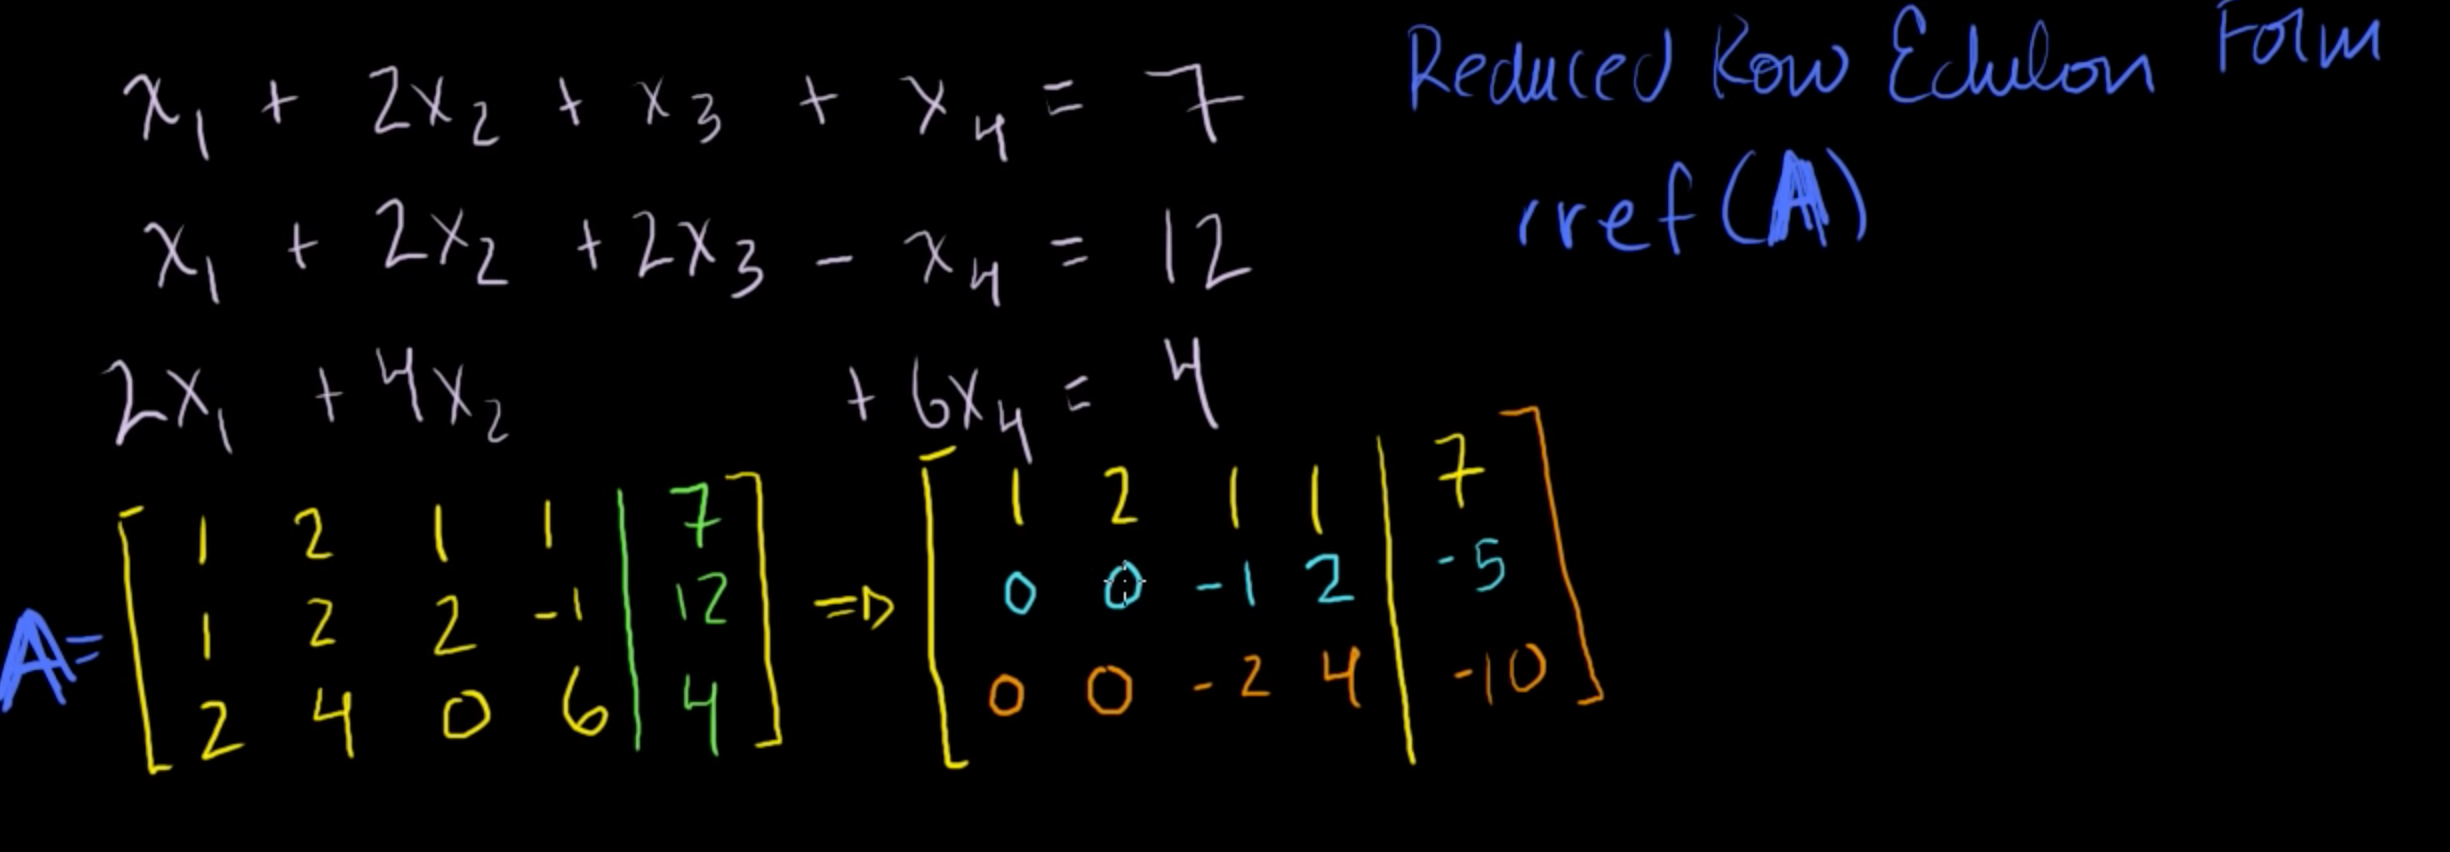 x₁ + 2x₂ + x₃ + x₄ = 7
x₁ + 2x₂ + 2x₃ - x₄ = 12
2x₁ + 4x₂ + 6x₄ = 4
Reduced Row Echelon Form
rref(A)
A = [ 1 2 1 1 | 7 ] => [ 1 2 1 1 | 7 ]
[ 1 2 2 -1 | 12 ] [ 0 0 -1 2 | -5 ]
[ 2 4 0 6 | 4 ] [ 0 0 -2 4 | -10 ]